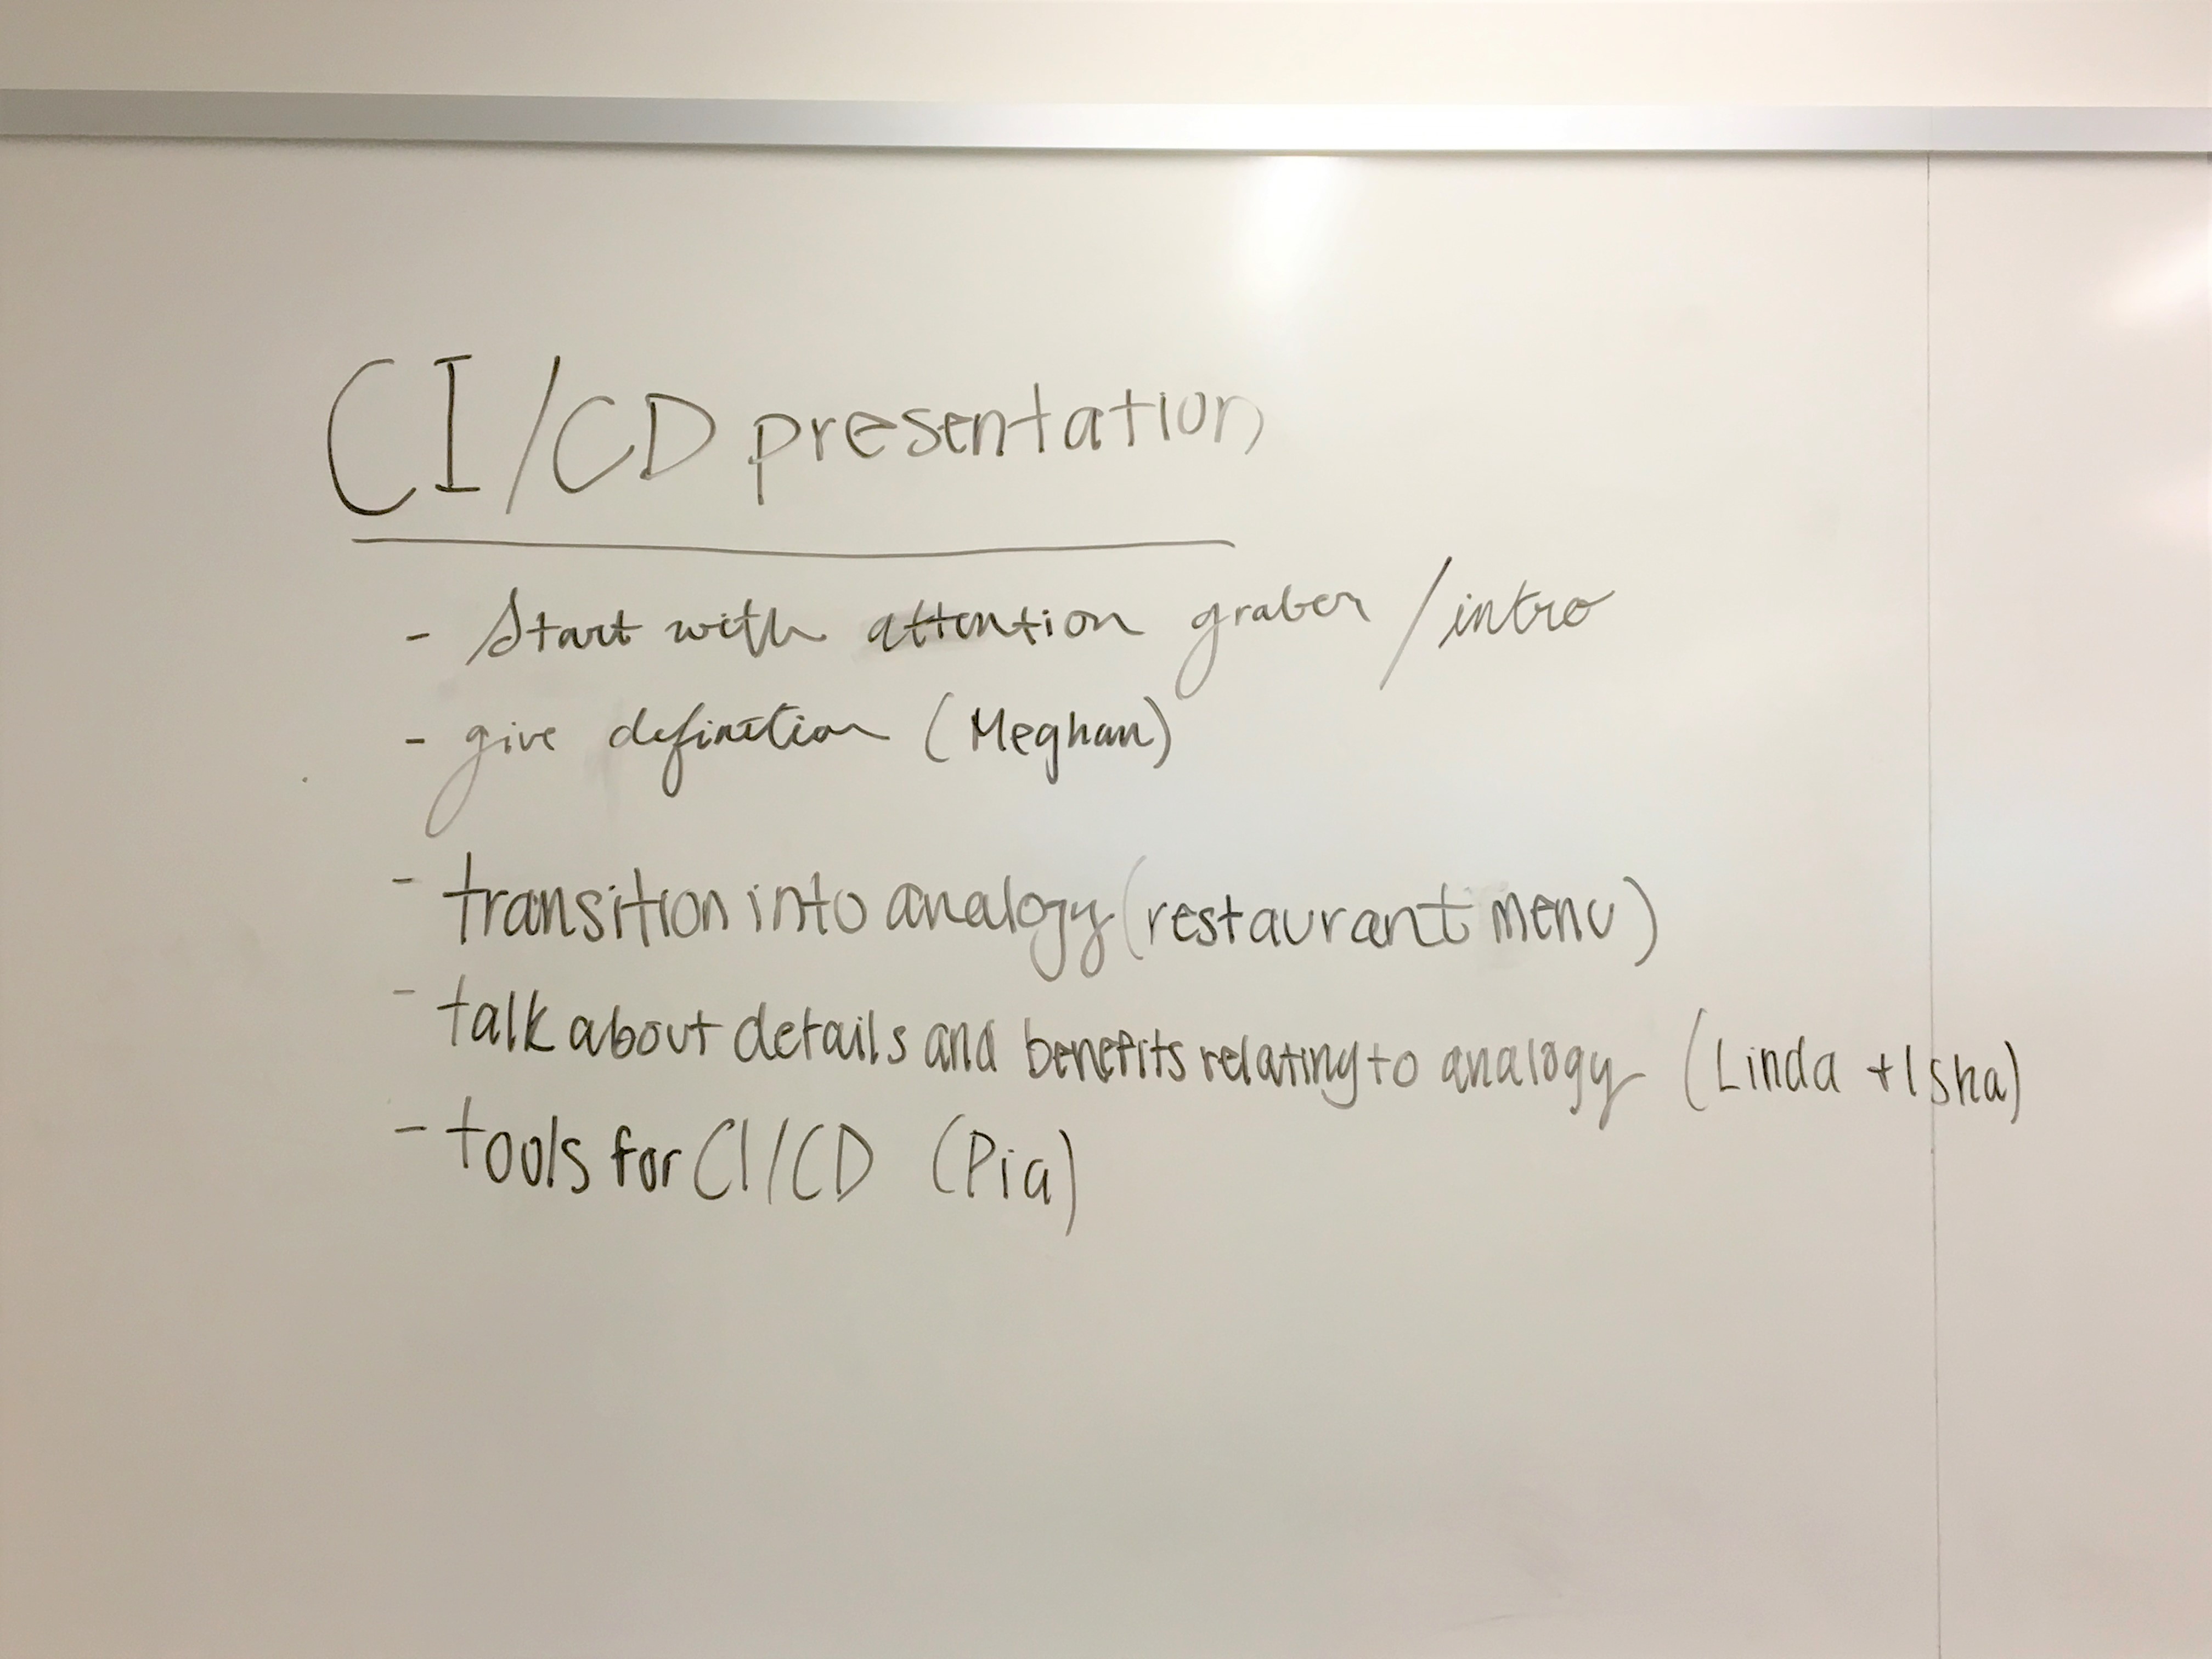 CI/CD presentation
- Start with attention graber / intro
- give definition (Meghan)
- transition into analogy (restaurant menu)
- talk about details and benefits relating to analogy (Linda + Isha)
- tools for CI/CD (Pia)